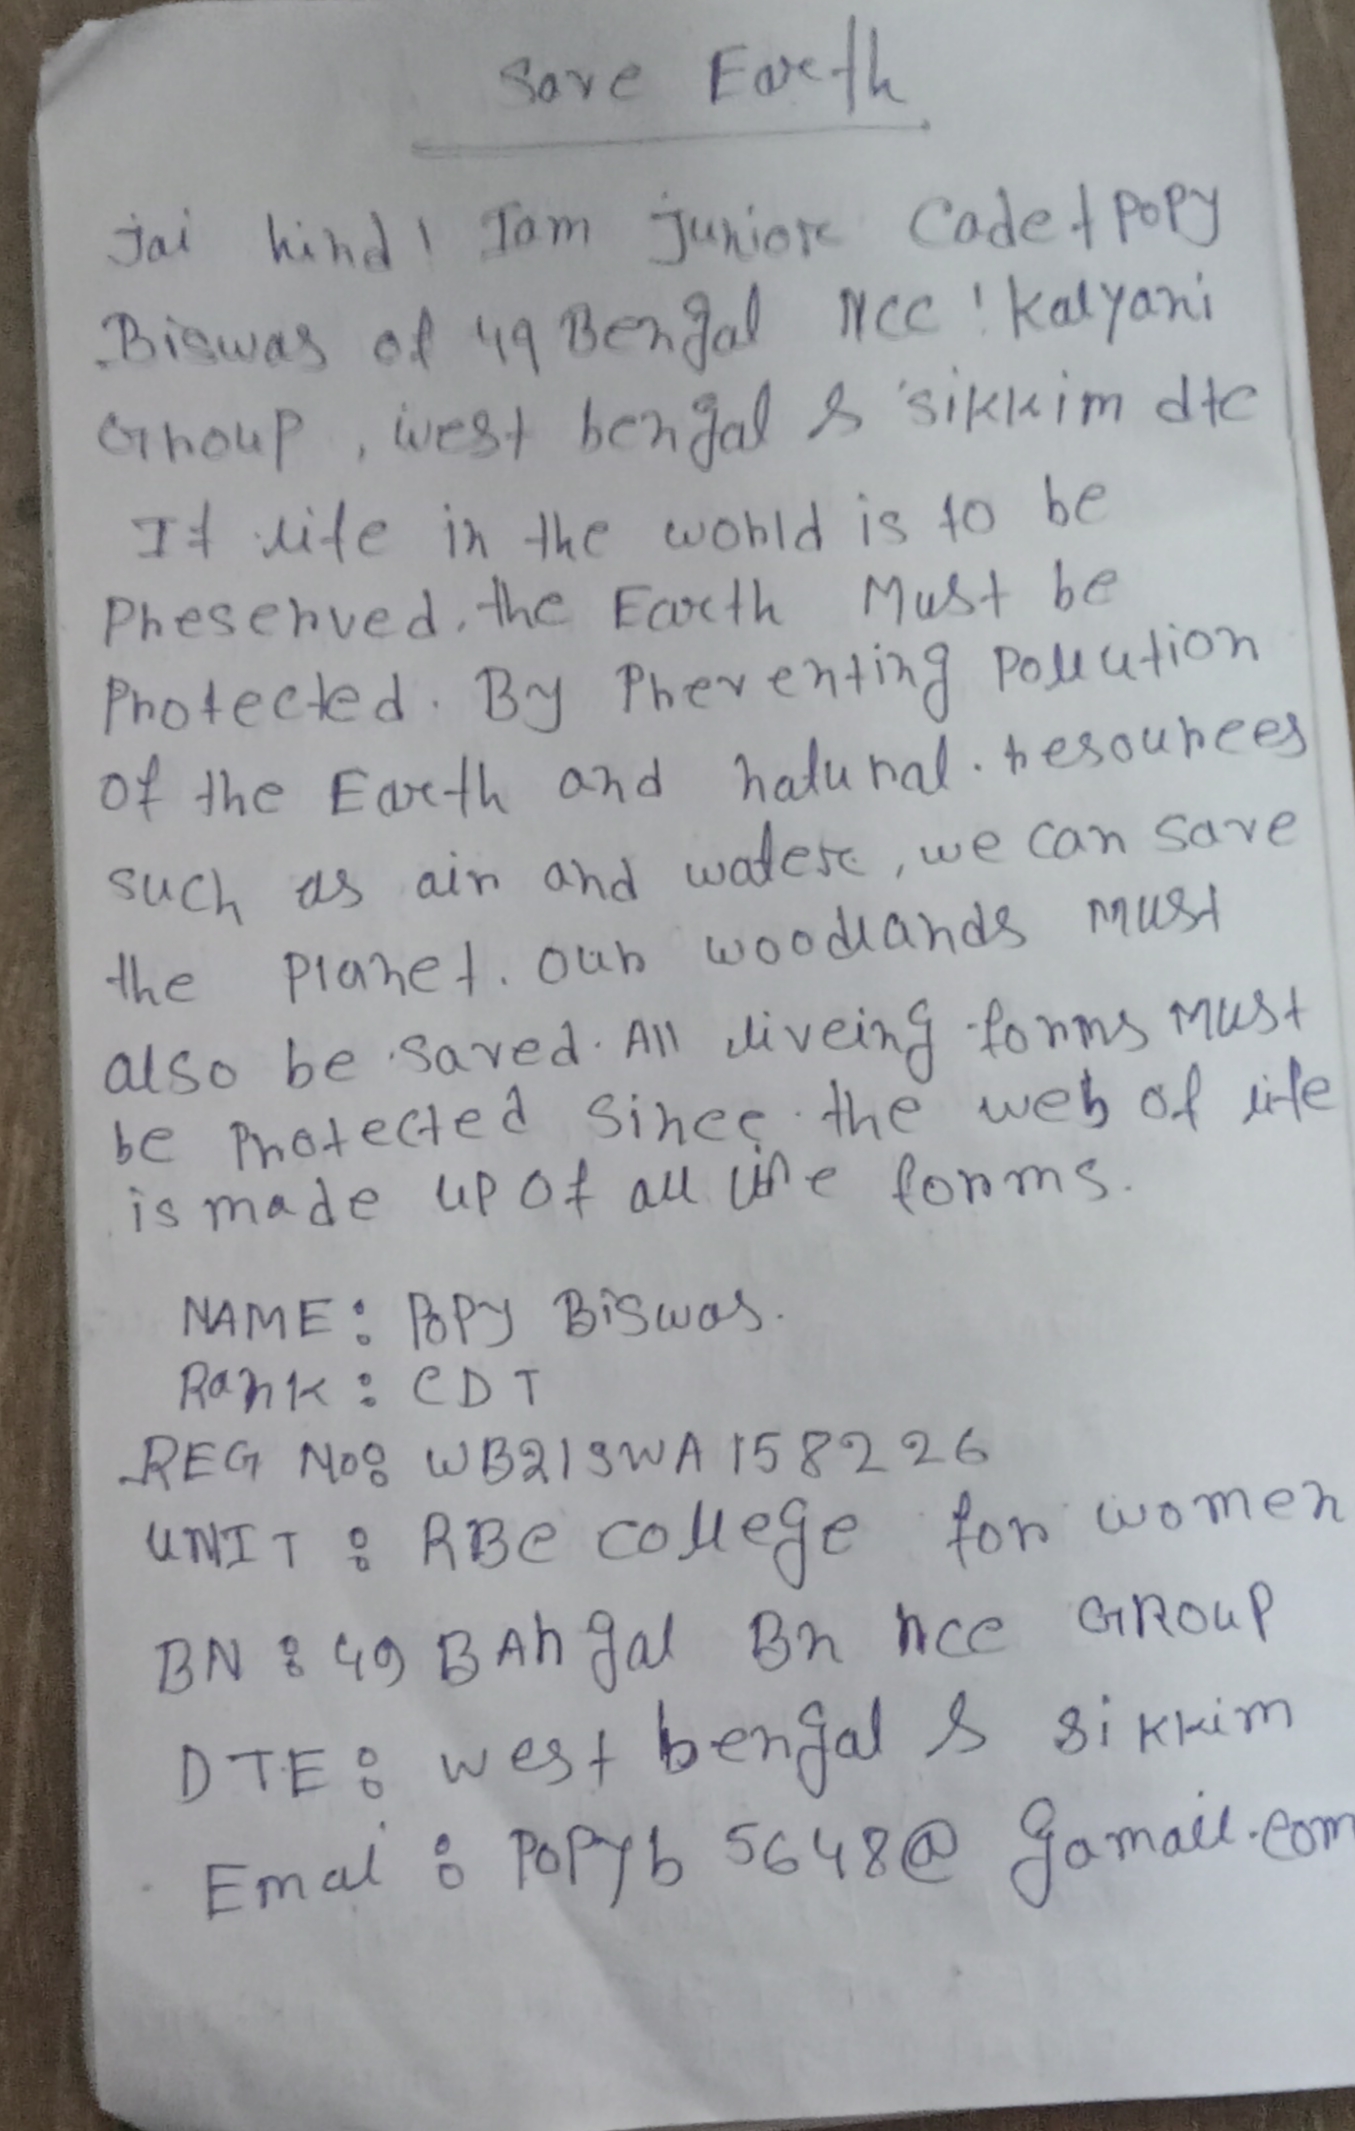 Save Earth
Jai hind! I am Junior Cadet Popy
Biswas of 49 Bengal NCC! Kalyani
Group, west bengal & sikkim dte
If life in the world is to be
Preserved, the Earth Must be
Protected. By Preventing Pollution
of the Earth and natural resources
such as air and water, we can save
the planet. our woodlands must
also be saved. All liveing forms Must
be Protected Since the web of life
is made up of all life forms.
NAME: Popy Biswas.
Rank: CDT
REG No: WB21SWA158226
UNIT: RBC College for women
BN: 49 BAngal Bn ncc GROUP
DTE: west bengal & sikkim
Emal: Popyb5648@gamail.com